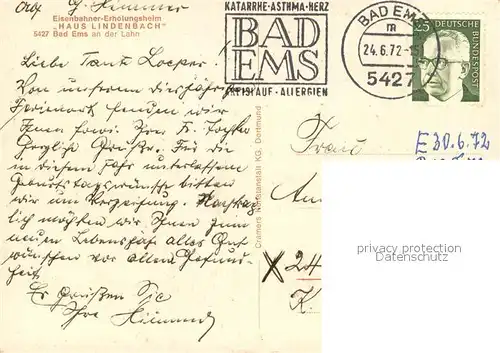 Abs. G. Hümmer
Eisenbahner-Erholungsheim
"HAUS LINDENBACH"
5427 Bad Ems an der Lahn
KATARRHE-ASTHMA-HERZ
BAD
EMS
KREISLAUF-ALLERGIEN
BAD EMS
m
24.6.72-15
5427
25
DEUTSCHE
BUNDESPOST
Liebe Tante
Von unserem diesjährigen
senden wir
Ihnen sowie Ihrer Fr. Tochter
herzliche Grüße. Für die
in diesem Jahr unterlassenen
Geburtstagswünsche bitten
wir um Verzeihung. Nachträg-
lich möchten wir Ihnen zum
neuen Lebensjahr alles Gute
wünschen vor allem Gesund-
heit.
Es grüßen Sie
Ihre
Cramers Kunstanstalt KG, Dortmund
Frau
E 30.6.72
An
x 24
K.
privacy protection
Datenschutz